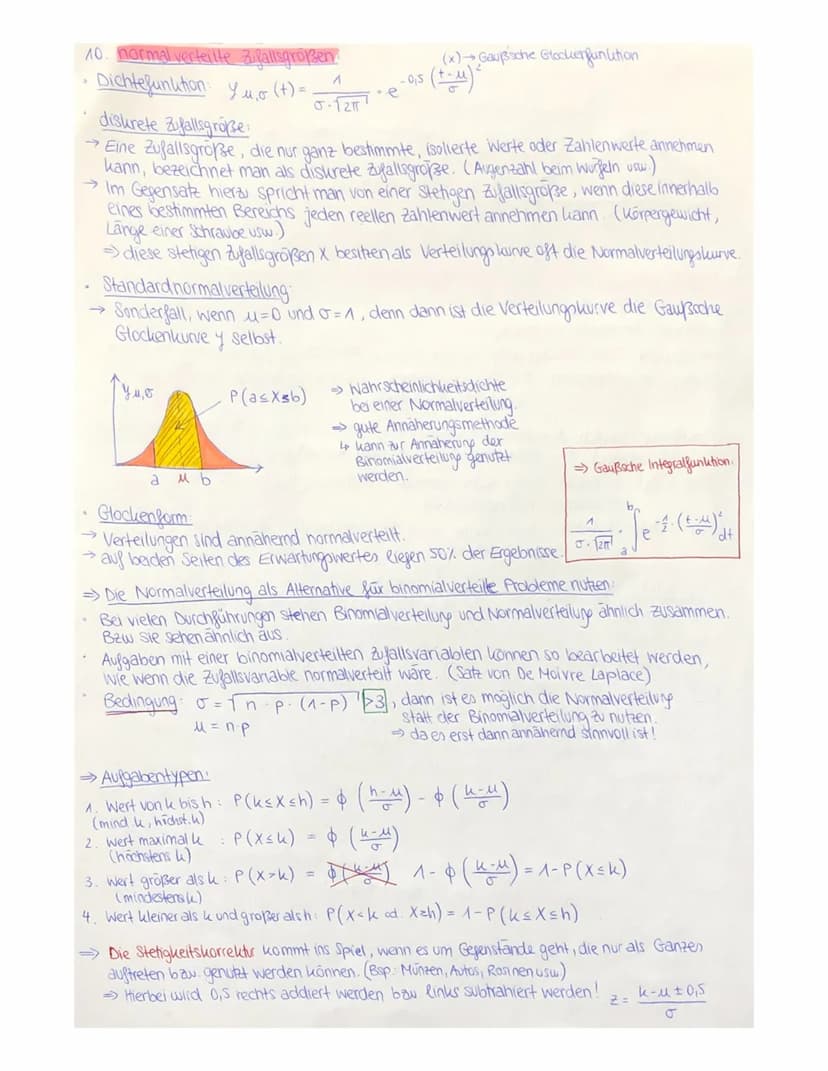 10. normalverteilte Zufallsgrößen:
(x) → Gaußsche Glockenfunktion
· Dichtefunktion: y μ,σ (t) = 1 / (σ·√2π) · e^(-0,5 ((t-μ)/σ)²)
· diskrete Zufallsgröße:
→ Eine Zufallsgröße, die nur ganz bestimmte, isolierte Werte oder Zahlenwerte annehmen
kann, bezeichnet man als diskrete Zufallsgröße. (Augenzahl beim Würfeln usw.)
→ Im Gegensatz hierzu spricht man von einer stetigen Zufallsgröße, wenn diese innerhalb
eines bestimmten Bereichs jeden reellen Zahlenwert annehmen kann. (Körpergewicht,
Länge einer Schraube usw.)
⇒ diese stetigen Zufallsgrößen X besitzen als Verteilungskurve oft die Normalverteilungskurve.
· Standardnormalverteilung:
→ Sonderfall, wenn μ=0 und σ=1, denn dann ist die Verteilungskurve die Gaußsche
Glockenkurve y selbst.
y μ,σ
P(a≤X≤b)
a μ b
⇒ Wahrscheinlichkeitsdichte
bei einer Normalverteilung.
⇒ gute Annäherungsmethode
↳ kann zur Annäherung der
Binomialverteilung genutzt
werden.
⇒ Gaußsche Integralfunktion:
1 / (σ·√2π) · ∫ₐᵇ e^(-1/2 · ((t-μ)/σ)²) dt
· Glockenform:
→ Verteilungen sind annähernd normalverteilt.
→ auf beiden Seiten des Erwartungswertes liegen 50% der Ergebnisse.
⇒ Die Normalverteilung als Alternative für binomialverteilte Probleme nutzen:
· Bei vielen Durchführungen stehen Binomialverteilung und Normalverteilung ähnlich zusammen.
Bzw sie sehen ähnlich aus.
· Aufgaben mit einer binomialverteilten Zufallsvariablen können so bearbeitet werden,
wie wenn die Zufallsvariable normalverteilt wäre. (Satz von De Moivre Laplace)
· Bedingung: σ = √n · p · (1-p) >3, dann ist es möglich die Normalverteilung
μ = n·p
statt der Binomialverteilung zu nutzen.
⇒ da es erst dann annähernd sinnvoll ist!
⇒ Aufgabentypen:
1. Wert von k bis h: P(k≤X≤h) = φ ((h-μ)/σ) - φ ((k-μ)/σ)
(mind k, höchst. h)
2. Wert maximal k : P(X≤k) = φ ((k-μ)/σ)
(höchstens k)
3. Wert größer als k: P(X>k) = φ((k-μ)/σ) 1-φ((k-μ)/σ) = 1-P(X≤k)
(mindestens k)
4. Wert kleiner als k und größer als h: P(X<k od. X≥h) = 1-P(k≤X≤h)
⇒ Die Stetigkeitskorrektur kommt ins Spiel, wenn es um Gegenstände geht, die nur als Ganzen
auftreten bzw. genutzt werden können. (Bsp: Münzen, Autos, Rosinen usw.)
⇒ Hierbei wird 0,5 rechts addiert werden bzw links subtrahiert werden! z = (k-μ±0,5)/σ